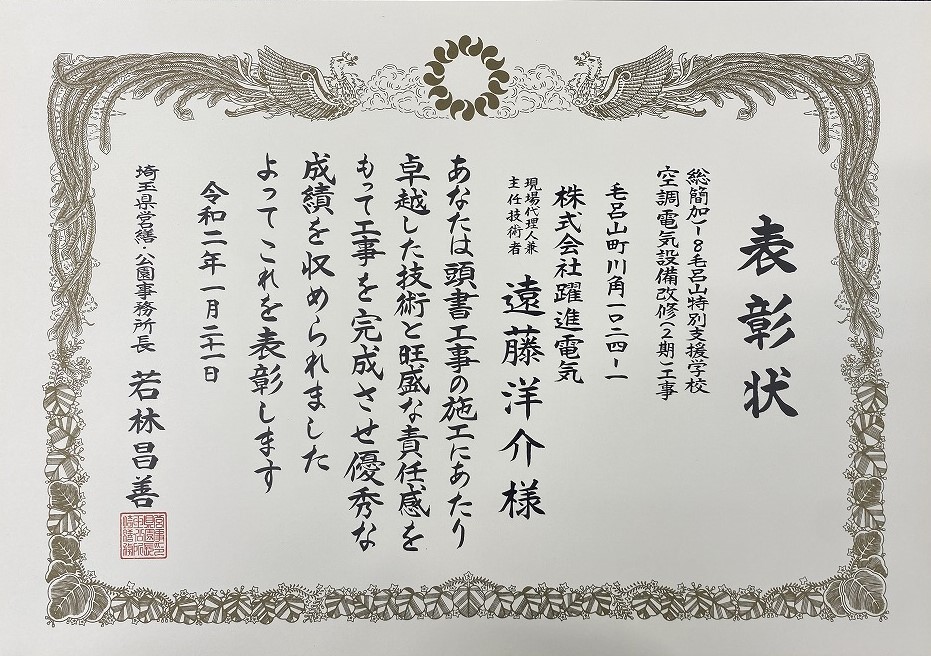 表彰状
総簡加1-8毛呂山特別支援学校
空調電気設備改修(2期)工事
毛呂山町川角一〇二四-一
株式会社躍進電気
現場代理人兼
主任技術者
遠藤洋介様
あなたは頭書工事の施工にあたり
卓越した技術と旺盛な責任感を
もって工事を完成させ優秀な
成績を収められました
よってこれを表彰します
令和二年一月二十一日
埼玉県営繕・公園事務所長 若林昌善